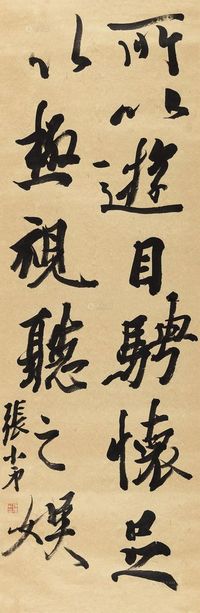 所以遊目騁懷足
以極視聽之娛
張小